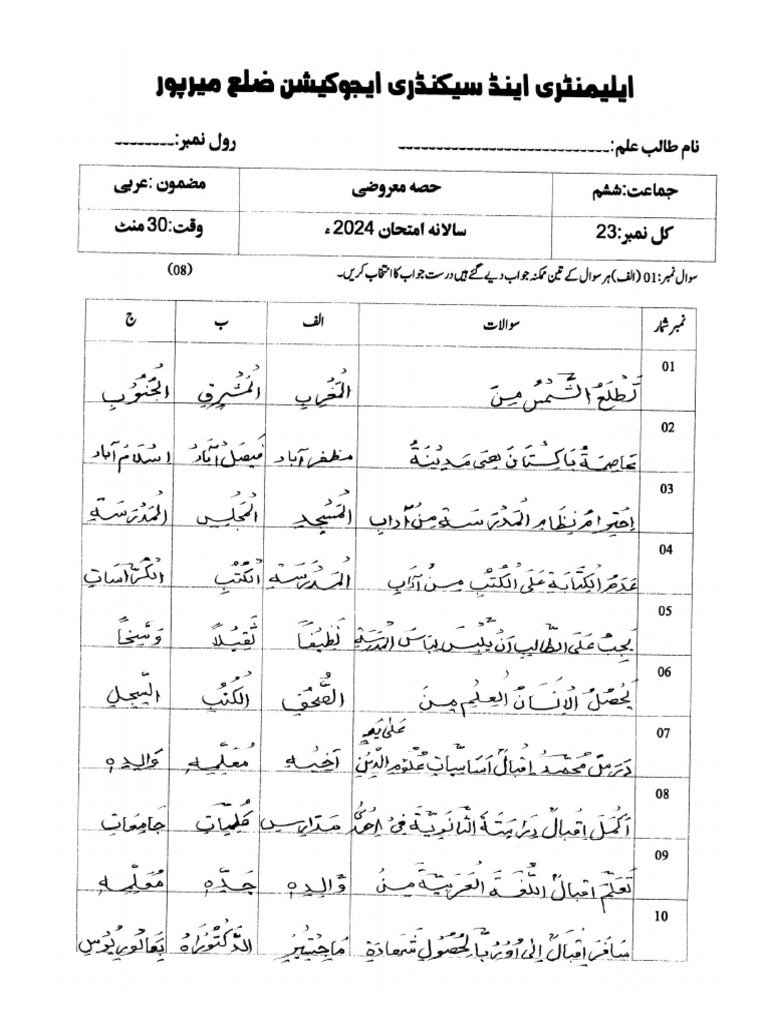 ایلیمنٹری اینڈ سیکنڈری ایجوکیشن ضلع میرپور
نام طالب علم:---------------------------- رول نمبر:--------
جماعت:ششم حصہ معروضی مضمون :عربی
کل نمبر:23 سالانہ امتحان 2024ء وقت:30 منٹ
سوال نمبر:01 (الف) ہر سوال کے تین ممکنہ جواب دیے گئے ہیں درست جواب کا انتخاب کریں۔ (08)
نمبر شمار سوالات الف ب ج
01 تَطْلَعُ الشَّمْسُ مِنَ المَغْرِبِ المَشْرِقِ الجُنُوبِ
02 عَاصِمَةُ بَاكِسْتَانَ هِيَ مَدِينَةُ مظفر آباد فَيصَل آبَادُ اسلام آباد
03 اِحْتِرَامُ نِظَامِ المَدْرَسَةِ مِنْ آدَابِ المَسْجِدِ المَجْلِسِ المَدْرَسَةِ
04 عَدَمُ الكِتَابَةِ عَلَى الكُتُبِ مِنْ آدَابِ المَدْرَسَةِ الكُتُبِ الكُرَّاسَاتِ
05 يَجِبُ عَلَى الطَّالِبِ اَنْ يَلْبِسَ لِبَاسَ المَدْرَسَةِ نَظِيفًا ثَقِيلًا وَسِخًا
06 يَحْصُلُ الاِنْسَانُ العِلْمَ مِنَ الصُّحُفِ الكُتُبِ السِّجِلِّ
07 دَرَسَ مُحَمَّد اِقْبَالُ اَسَاسِيَاتِ عُلُومِ الدِّيْنِ عَلٰى يَدِ اَخِيْهِ مُعَلِّمِهِ وَالِدِهِ
08 اَكْمَلَ اِقْبَالُ دِرَاسَتَهُ الثَّانَوِيَّةَ فِي اِحْدَى مَدَارِسِ كُلِّيَّاتِ جَامِعَاتِ
09 تَعَلَّمَ اِقْبَالُ اللُّغَةَ العَرَبِيَّةَ مِنْ وَالِدِهِ جَدِّهِ مُعَلِّمِهِ
10 سَافَرَ اِقْبَالُ اِلٰى اُوْرُبَّا لِحُصُولِ شَهَادَةِ مَاجِسْتِيْرِ الدُّكْتُوْرَاهُ بَكَالُورِيُوْسِ